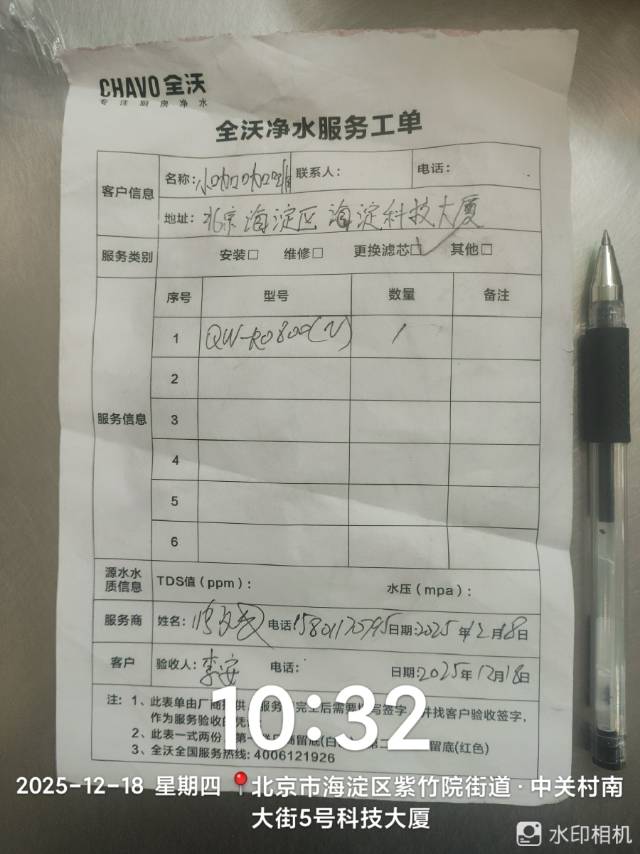 CHAVO 全沃
专注厨房净水
全沃净水服务工单
客户信息 名称: 联系人: 电话:
地址: 北京海淀区海淀科技大厦
服务类别 安装□ 维修□ 更换滤芯☑ 其他□
服务信息 序号 型号 数量 备注
1 QW-RO800(N) 1
2
3
4
5
6
源水水质信息 TDS值(ppm): 水压(mpa):
服务商 姓名: 电话 日期:2025年12月18日
客户 验收人: 李安 电话: 日期:2025年12月18日
注: 1、此表单由厂商提供 服务 完工后需要 写签字 并找客户验收签字,
作为服务验收的凭
2、此表一式两份 第一 留底(白 第二 留底(红色)
3、全沃全国服务热线: 4006121926
10:32
2025-12-18 星期四 北京市海淀区紫竹院街道·中关村南
大街5号科技大厦
水印相机